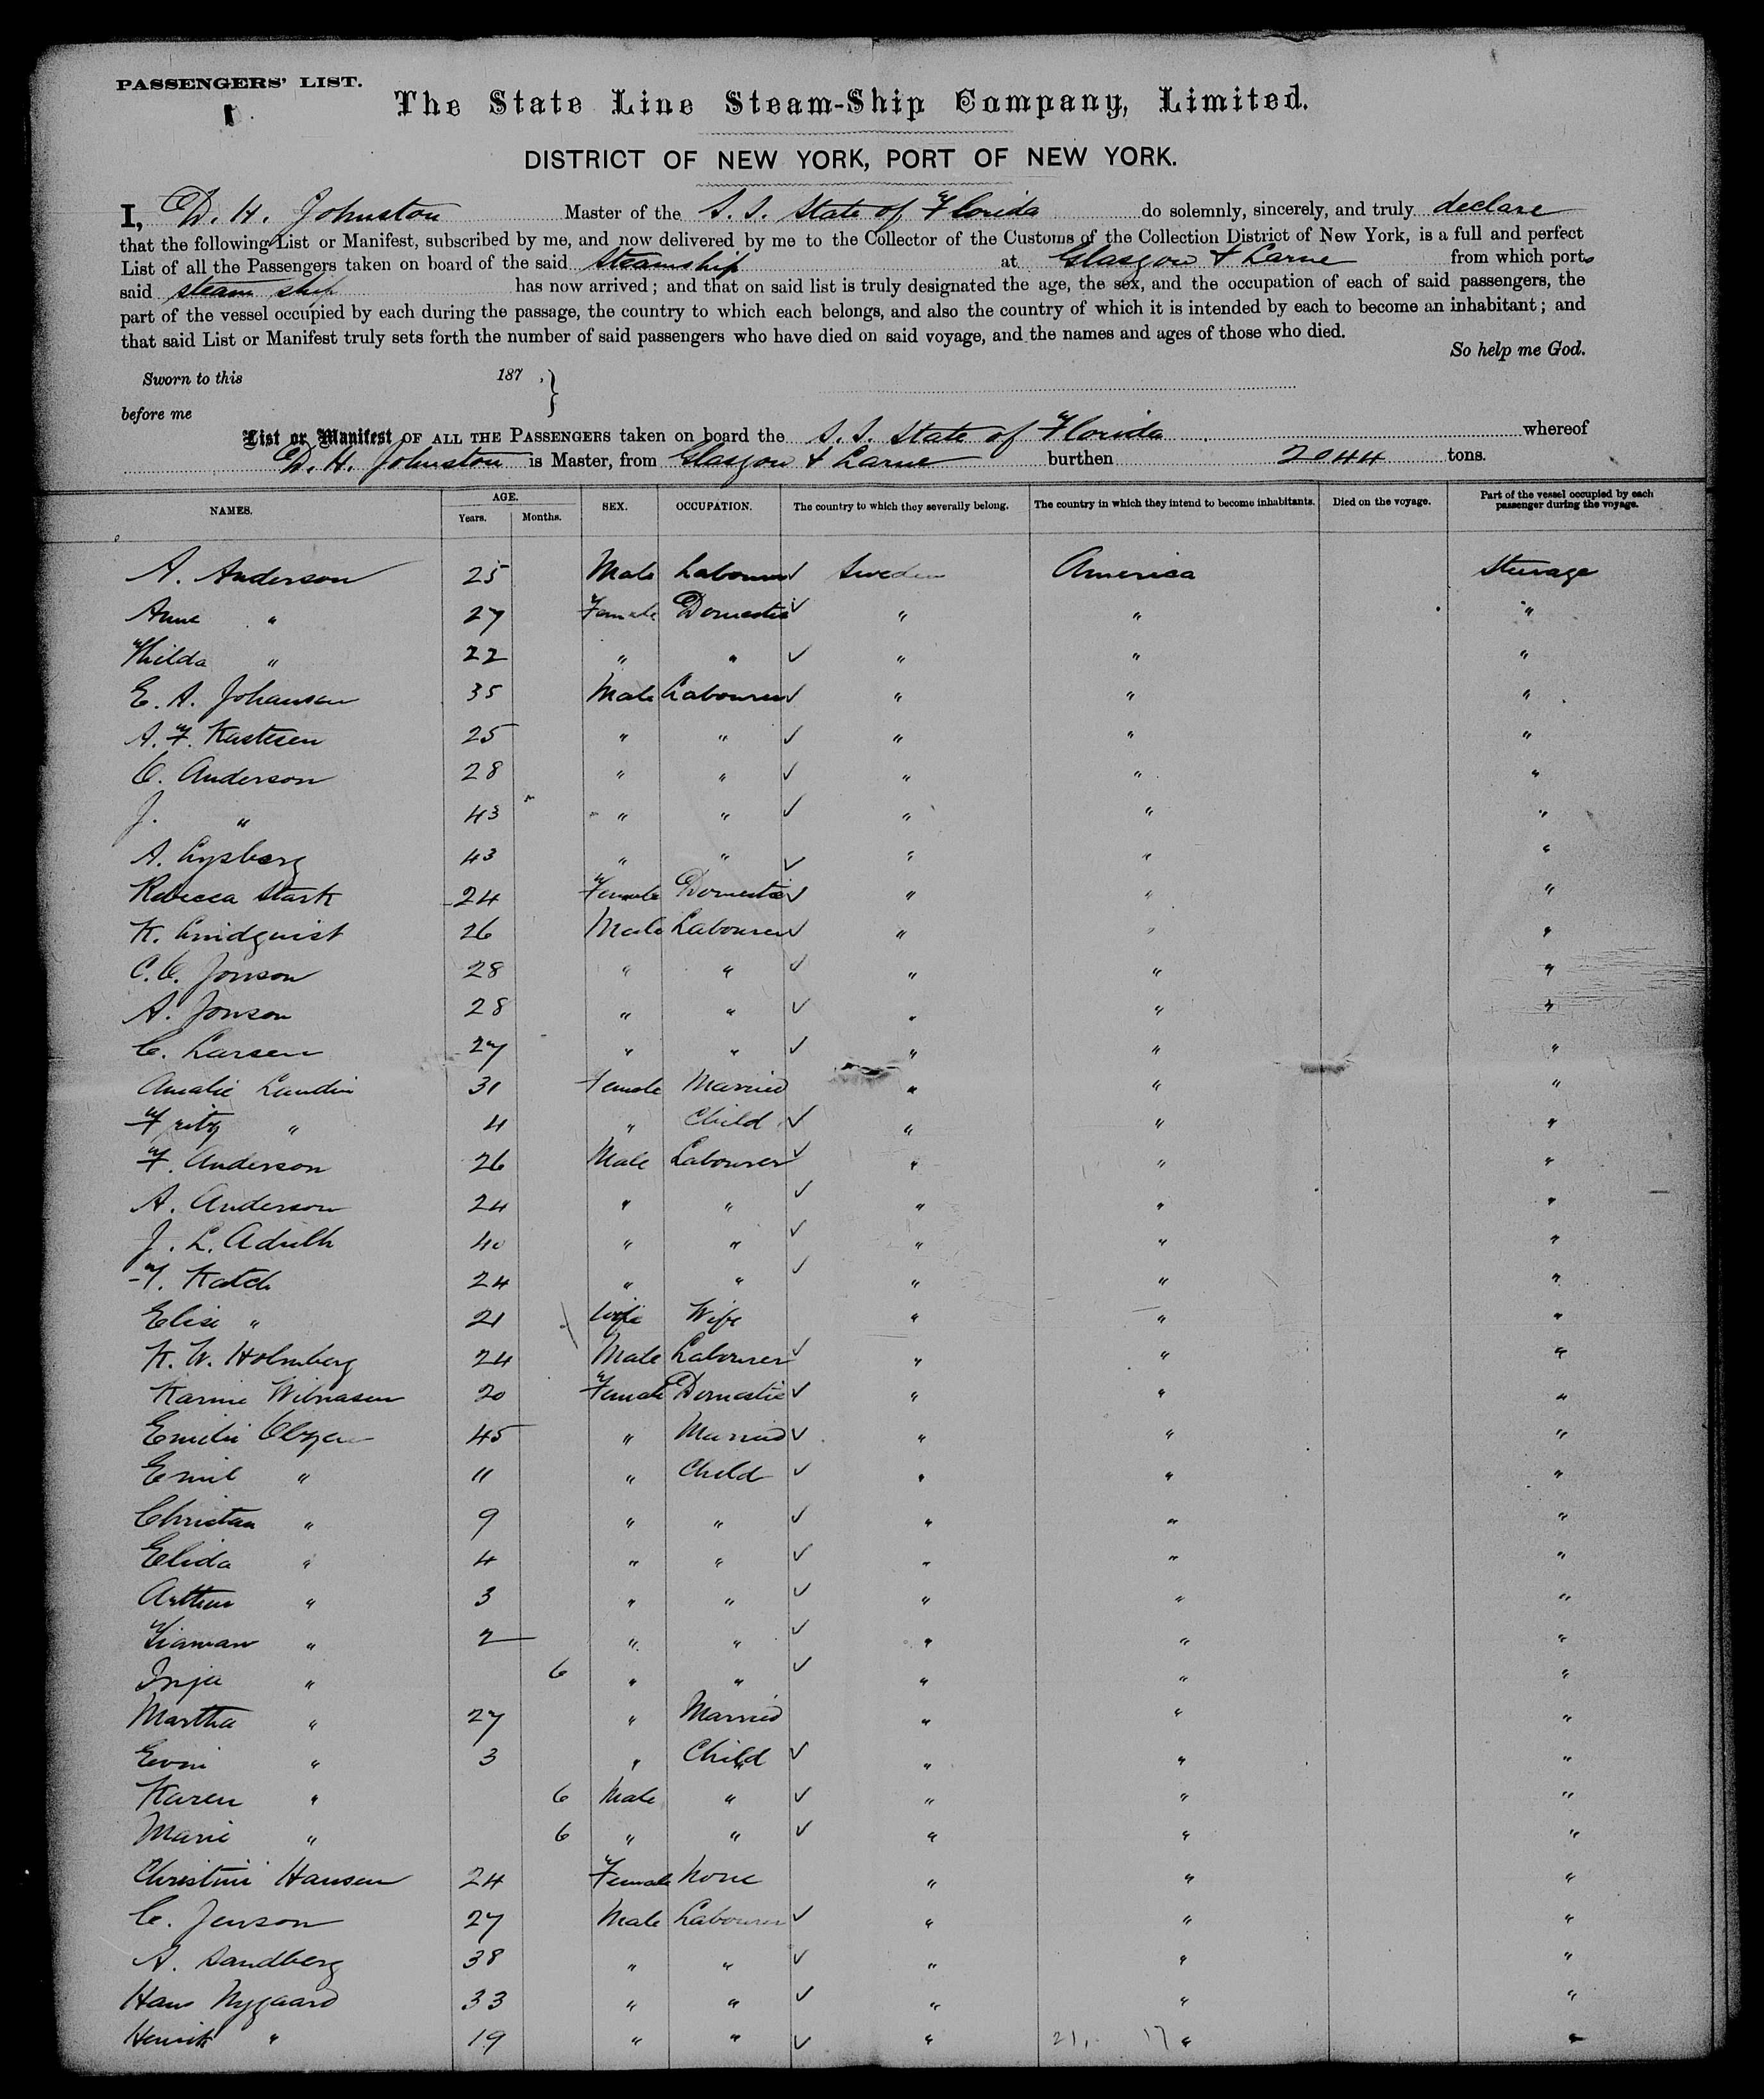 PASSENGERS' LIST.
The State Line Steam-Ship Company, Limited.
DISTRICT OF NEW YORK, PORT OF NEW YORK.
I, D. H. Johnston Master of the S. S. State of Florida do solemnly, sincerely, and truly declare
that the following List or Manifest, subscribed by me, and now delivered by me to the Collector of the Customs of the Collection District of New York, is a full and perfect
List of all the Passengers taken on board of the said steamship at Glasgow & Larne from which ports
said steam ship has now arrived; and that on said list is truly designated the age, the sex, and the occupation of each of said passengers, the
part of the vessel occupied by each during the passage, the country to which each belongs, and also the country of which it is intended by each to become an inhabitant; and
that said List or Manifest truly sets forth the number of said passengers who have died on said voyage, and the names and ages of those who died.
So help me God.
Sworn to this 187 .}
before me
List or Manifest OF ALL THE PASSENGERS taken on board the S. S. State of Florida whereof
D. H. Johnston is Master, from Glasgow & Larne burthen 2044 tons.
NAMES. AGE. Years. Months. SEX. OCCUPATION. The country to which they severally belong. The country in which they intend to become inhabitants. Died on the voyage. Part of the vessel occupied by each passenger during the voyage.
A. Anderson 25 Male Labourer ✓ Sweden America Steerage
Anne " 27 Female Domestic ✓ " " "
Hilda " 22 " " ✓ " " "
E. A. Johansen 35 Male Labourer ✓ " " "
A. F. Kastesen 25 " " ✓ " " "
C. Anderson 28 " " ✓ " " "
J. " 43 " " ✓ " " "
A. Lysberg 43 " " ✓ " " "
Rebecca Stark 24 Female Domestic ✓ " " "
K. Lindquist 26 Male Labourer ✓ " " "
C. C. Jonson 28 " " ✓ " " "
A. Jonson 28 " " ✓ " " "
C. Larsen 27 " " ✓ " " "
Amalie Lundin 31 Female Married " " "
Fritz " 4 " Child ✓ " " "
F. Anderson 26 Male Labourer ✓ " " "
A. Anderson 24 " " ✓ " " "
J. L. 40 " " ✓ " " "
F. Katch 24 " " ✓ " " "
Elise " 21 Wife Wife " " "
K. W. Holmberg 24 Male Labourer ✓ " " "
Karine 20 Female Domestic ✓ " " "
Emilie 45 " Married ✓ " " "
Emil " 11 " Child ✓ " " "
Christian " 9 " " ✓ " " "
Elida " 4 " " ✓ " " "
Arthur " 3 " " ✓ " " "
" 2 " " ✓ " " "
Inja " 6 " " ✓ " " "
Martha " 27 " Married " " "
" 3 " Child ✓ " " "
Karen " 6 Male " ✓ " " "
Marie " 6 " " ✓ " " "
Christini Hansen 24 Female None " " "
C. Jenson 27 Male Labourer ✓ " " "
A. Sandberg 38 " " ✓ " " "
Hans Nygaard 33 " " ✓ " " "
Henrik " 19 " " ✓ " 21, 17 " "